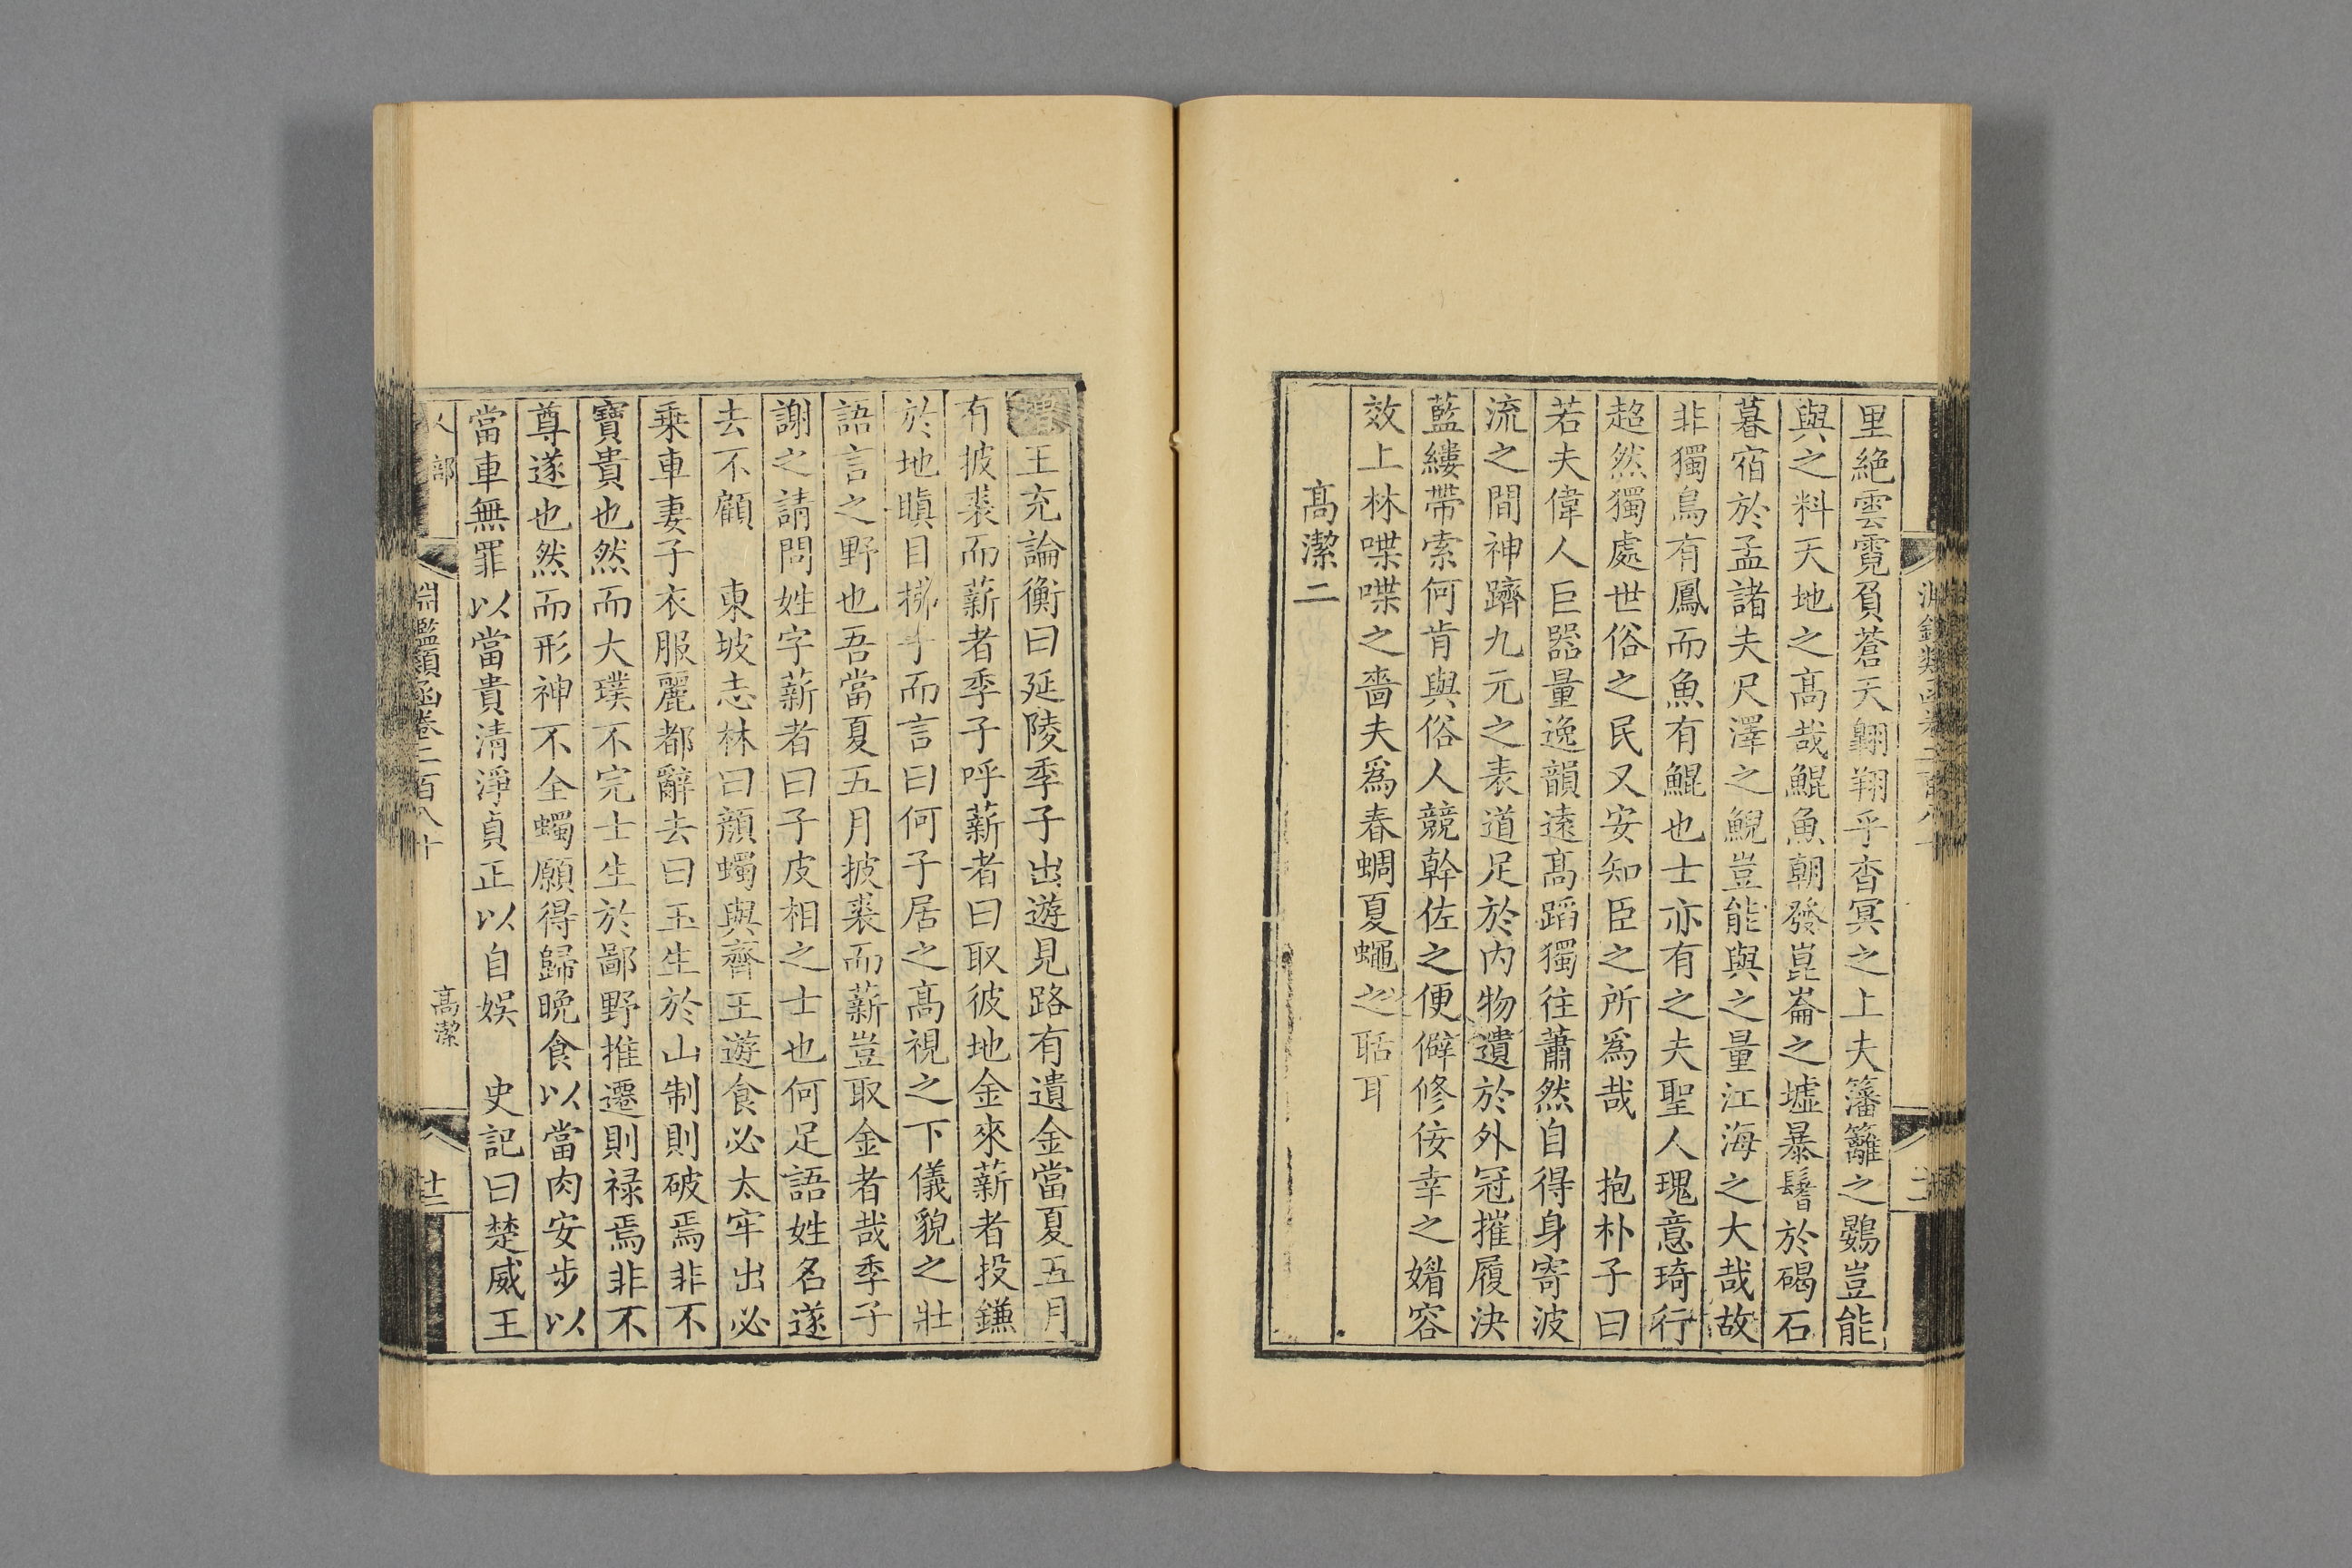 里絶雲霓負蒼天翺翔乎杳冥之上夫籓籬之鷃豈能
與之料天地之髙哉鯤魚朝發崑崙之墟暴鬐於碣石
暮宿於孟諸夫尺澤之鯢豈能與之量江海之大哉故
非獨鳥有鳳而魚有鯤也士亦有之夫聖人瑰意琦行
超然獨處世俗之民又安知臣之所爲哉　抱朴子曰
若夫偉人巨器量逸韻遠髙蹈獨往蕭然自得身寄波
流之間神躋九元之表道足於内物遺於外冠摧履決
藍縷帶索何肯與俗人競幹佐之便僻修佞幸之媚容
效上林喋喋之嗇夫爲春蜩夏蠅之聒耳
髙潔二
王充論衡曰延陵季子出遊見路有遺金當夏五月
有披裘而薪者季子呼薪者曰取彼地金來薪者投鎌
於地瞋目拂手而言曰何子居之髙視之下儀貌之壯
語言之野也吾當夏五月披裘而薪豈取金者哉季子
謝之請問姓字薪者曰子皮相之士也何足語姓名遂
去不顧　東坡志林曰顔蠋與齊王遊食必太牢出必
乘車妻子衣服麗都辭去曰玉生於山制則破焉非不
寶貴也然而大璞不完士生於鄙野推遷則禄焉非不
尊遂也然而形神不全蠋願得歸晩食以當肉安步以
當車無罪以當貴清淨貞正以自娯　史記曰楚威王
人部
淵鑑類函卷二百八十
髙潔
十三